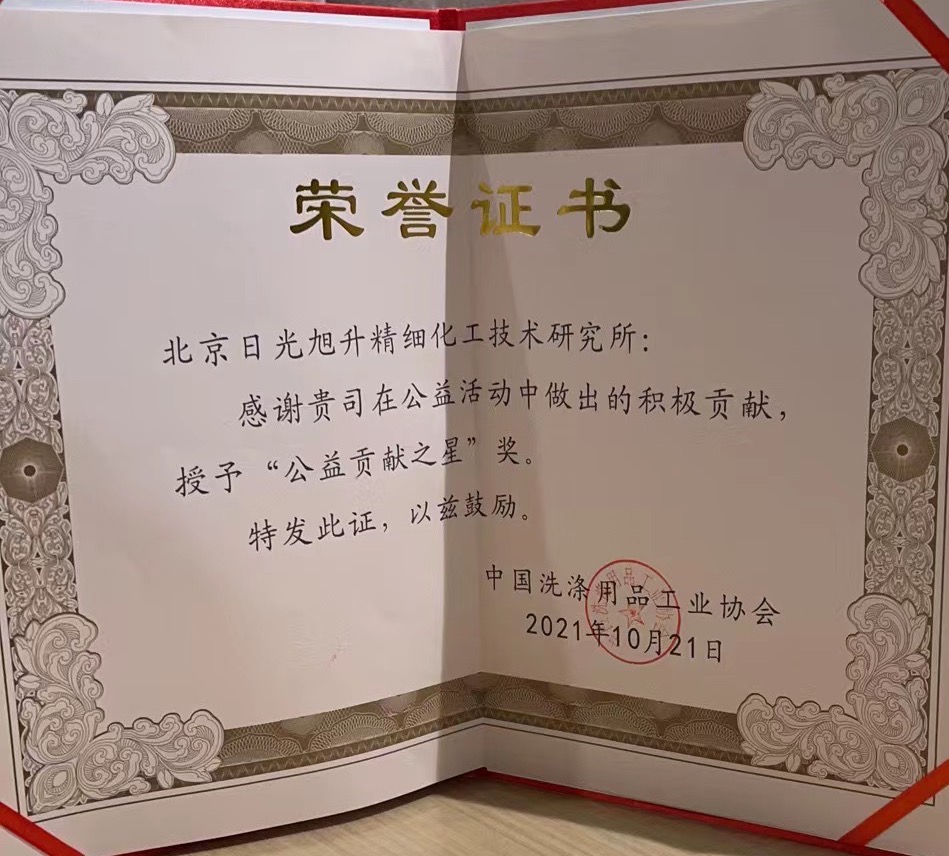 荣誉证书
北京日光旭升精细化工技术研究所：
感谢贵司在公益活动中做出的积极贡献，
授予“公益贡献之星”奖。
特发此证，以兹鼓励。
中国洗涤用品工业协会
2021年10月21日